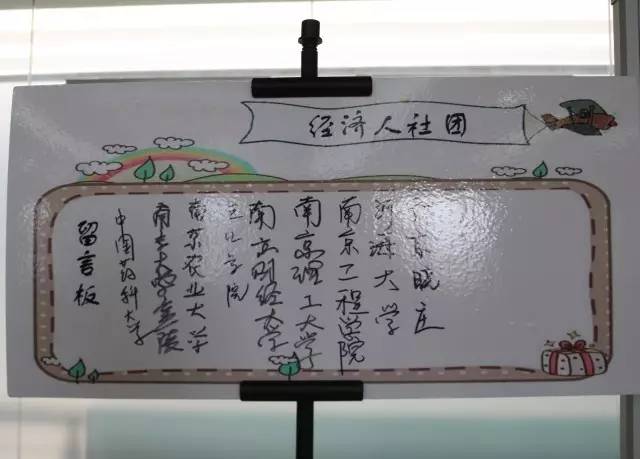 经济人社团
南京晓庄
河海大学
南京工程学院
南京理工大学
南京财经大学
三江学院
南京农业大学
南京大学金陵
中国药科大学
留言板